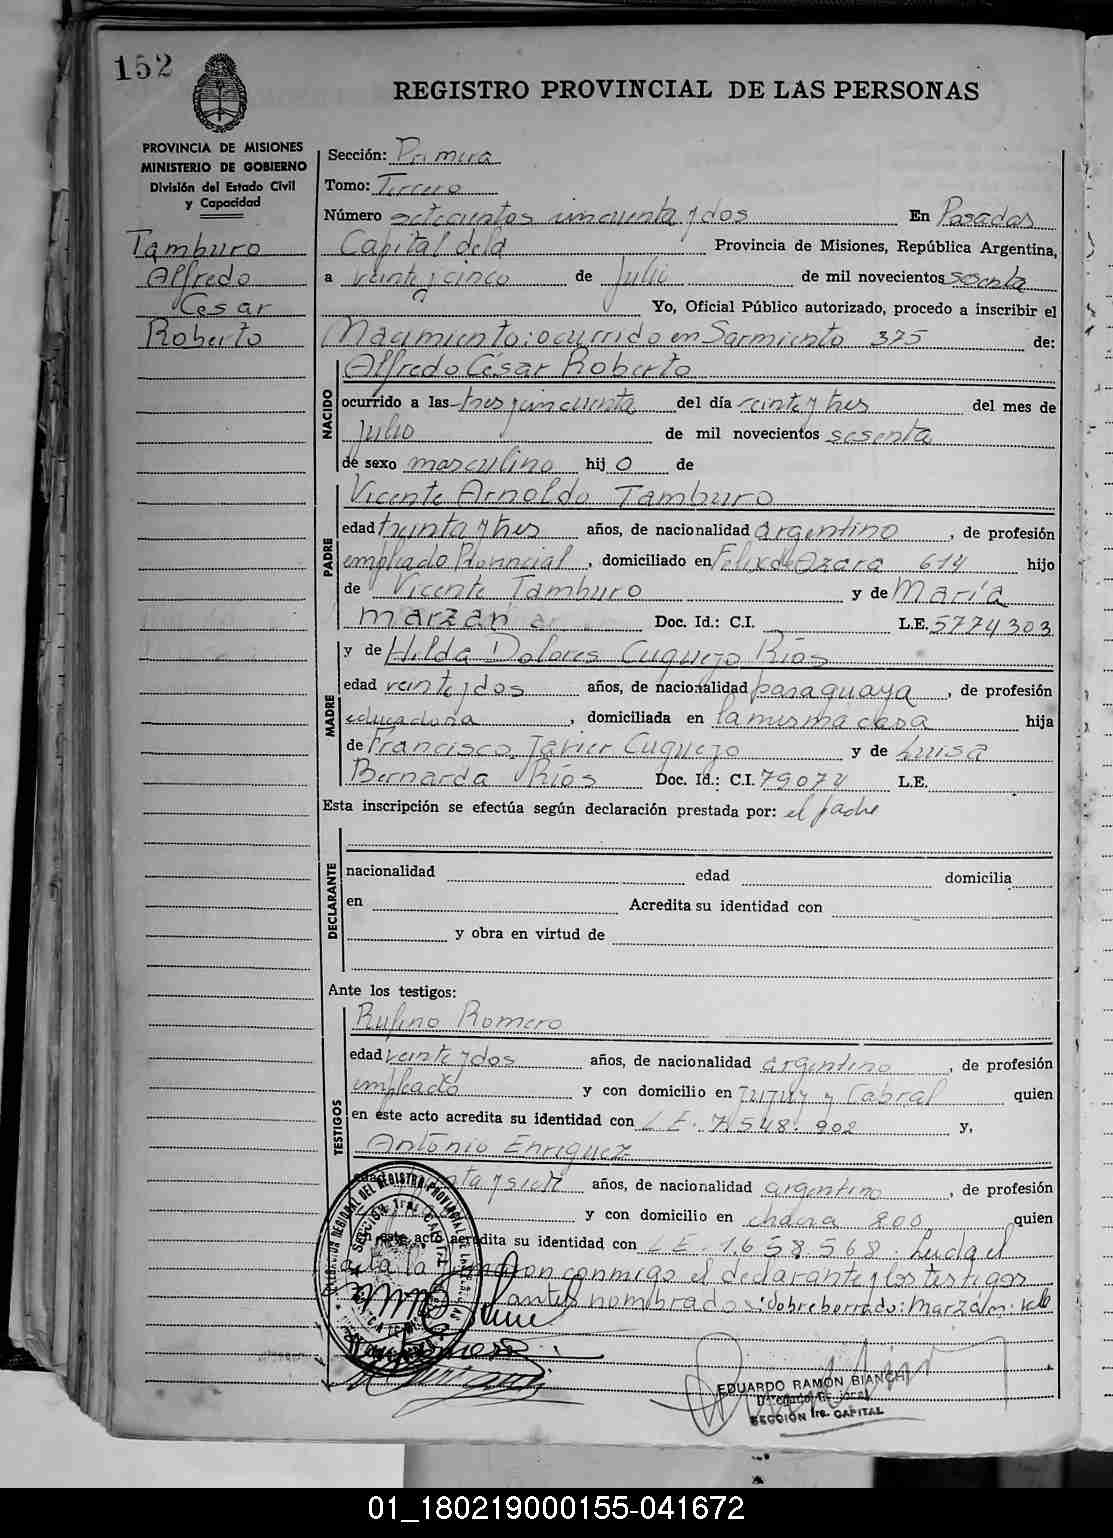 152
REGISTRO PROVINCIAL DE LAS PERSONAS
PROVINCIA DE MISIONES
MINISTERIO DE GOBIERNO
División del Estado Civil
y Capacidad
Tamburo
Alfredo
Cesar
Roberto
Sección: Primera
Tomo: Tercero
Número setecientos cincuenta y dos En Posadas
Capital de la Provincia de Misiones, República Argentina,
a veinte y cinco de Julio de mil novecientos sesenta
Yo, Oficial Público autorizado, procedo a inscribir el
Nacimiento: ocurrido en Sarmiento 375 de:
NACIDO
Alfredo César Roberto
ocurrido a las tres y cincuenta del día veinte y tres del mes de
Julio de mil novecientos sesenta
de sexo masculino hij o de
PADRE
Vicente Arnoldo Tamburo
edad treinta y tres años, de nacionalidad argentino, de profesión
empleado Provincial, domiciliado en Felix de Azara 614 hijo
de Vicente Tamburo y de María
Marzán Doc. Id.: C.I. L.E. 5774303
MADRE
y de Hilda Dolores Cuquejo Ríos
edad veinte y dos años, de nacionalidad paraguaya, de profesión
educadora, domiciliada en la misma casa hija
de Francisco Javier Cuquejo y de Luisa
Bernarda Ríos Doc. Id.: C.I. 79074 L.E.
Esta inscripción se efectúa según declaración prestada por: el padre
DECLARANTE
nacionalidad edad domicilia
en Acredita su identidad con
y obra en virtud de
Ante los testigos:
TESTIGOS
Rufino Romero
edad veinte y dos años, de nacionalidad argentino, de profesión
empleado y con domicilio en Jujuy y Cabral quien
en este acto acredita su identidad con L E. 7.548.902 y,
Antonio Enriquez
edad y siete años, de nacionalidad argentino, de profesión
y con domicilio en chacra 200 quien
en este acto acredita su identidad con L E. 1.658.568. Leída el
acta la firmaron conmigo el declarante y los testigos
antes nombrados. Sobreborrado: Marzán: vale
EDUARDO RAMON BIANCHI
SECCIÓN 1ra. CAPITAL
01_180219000155-041672